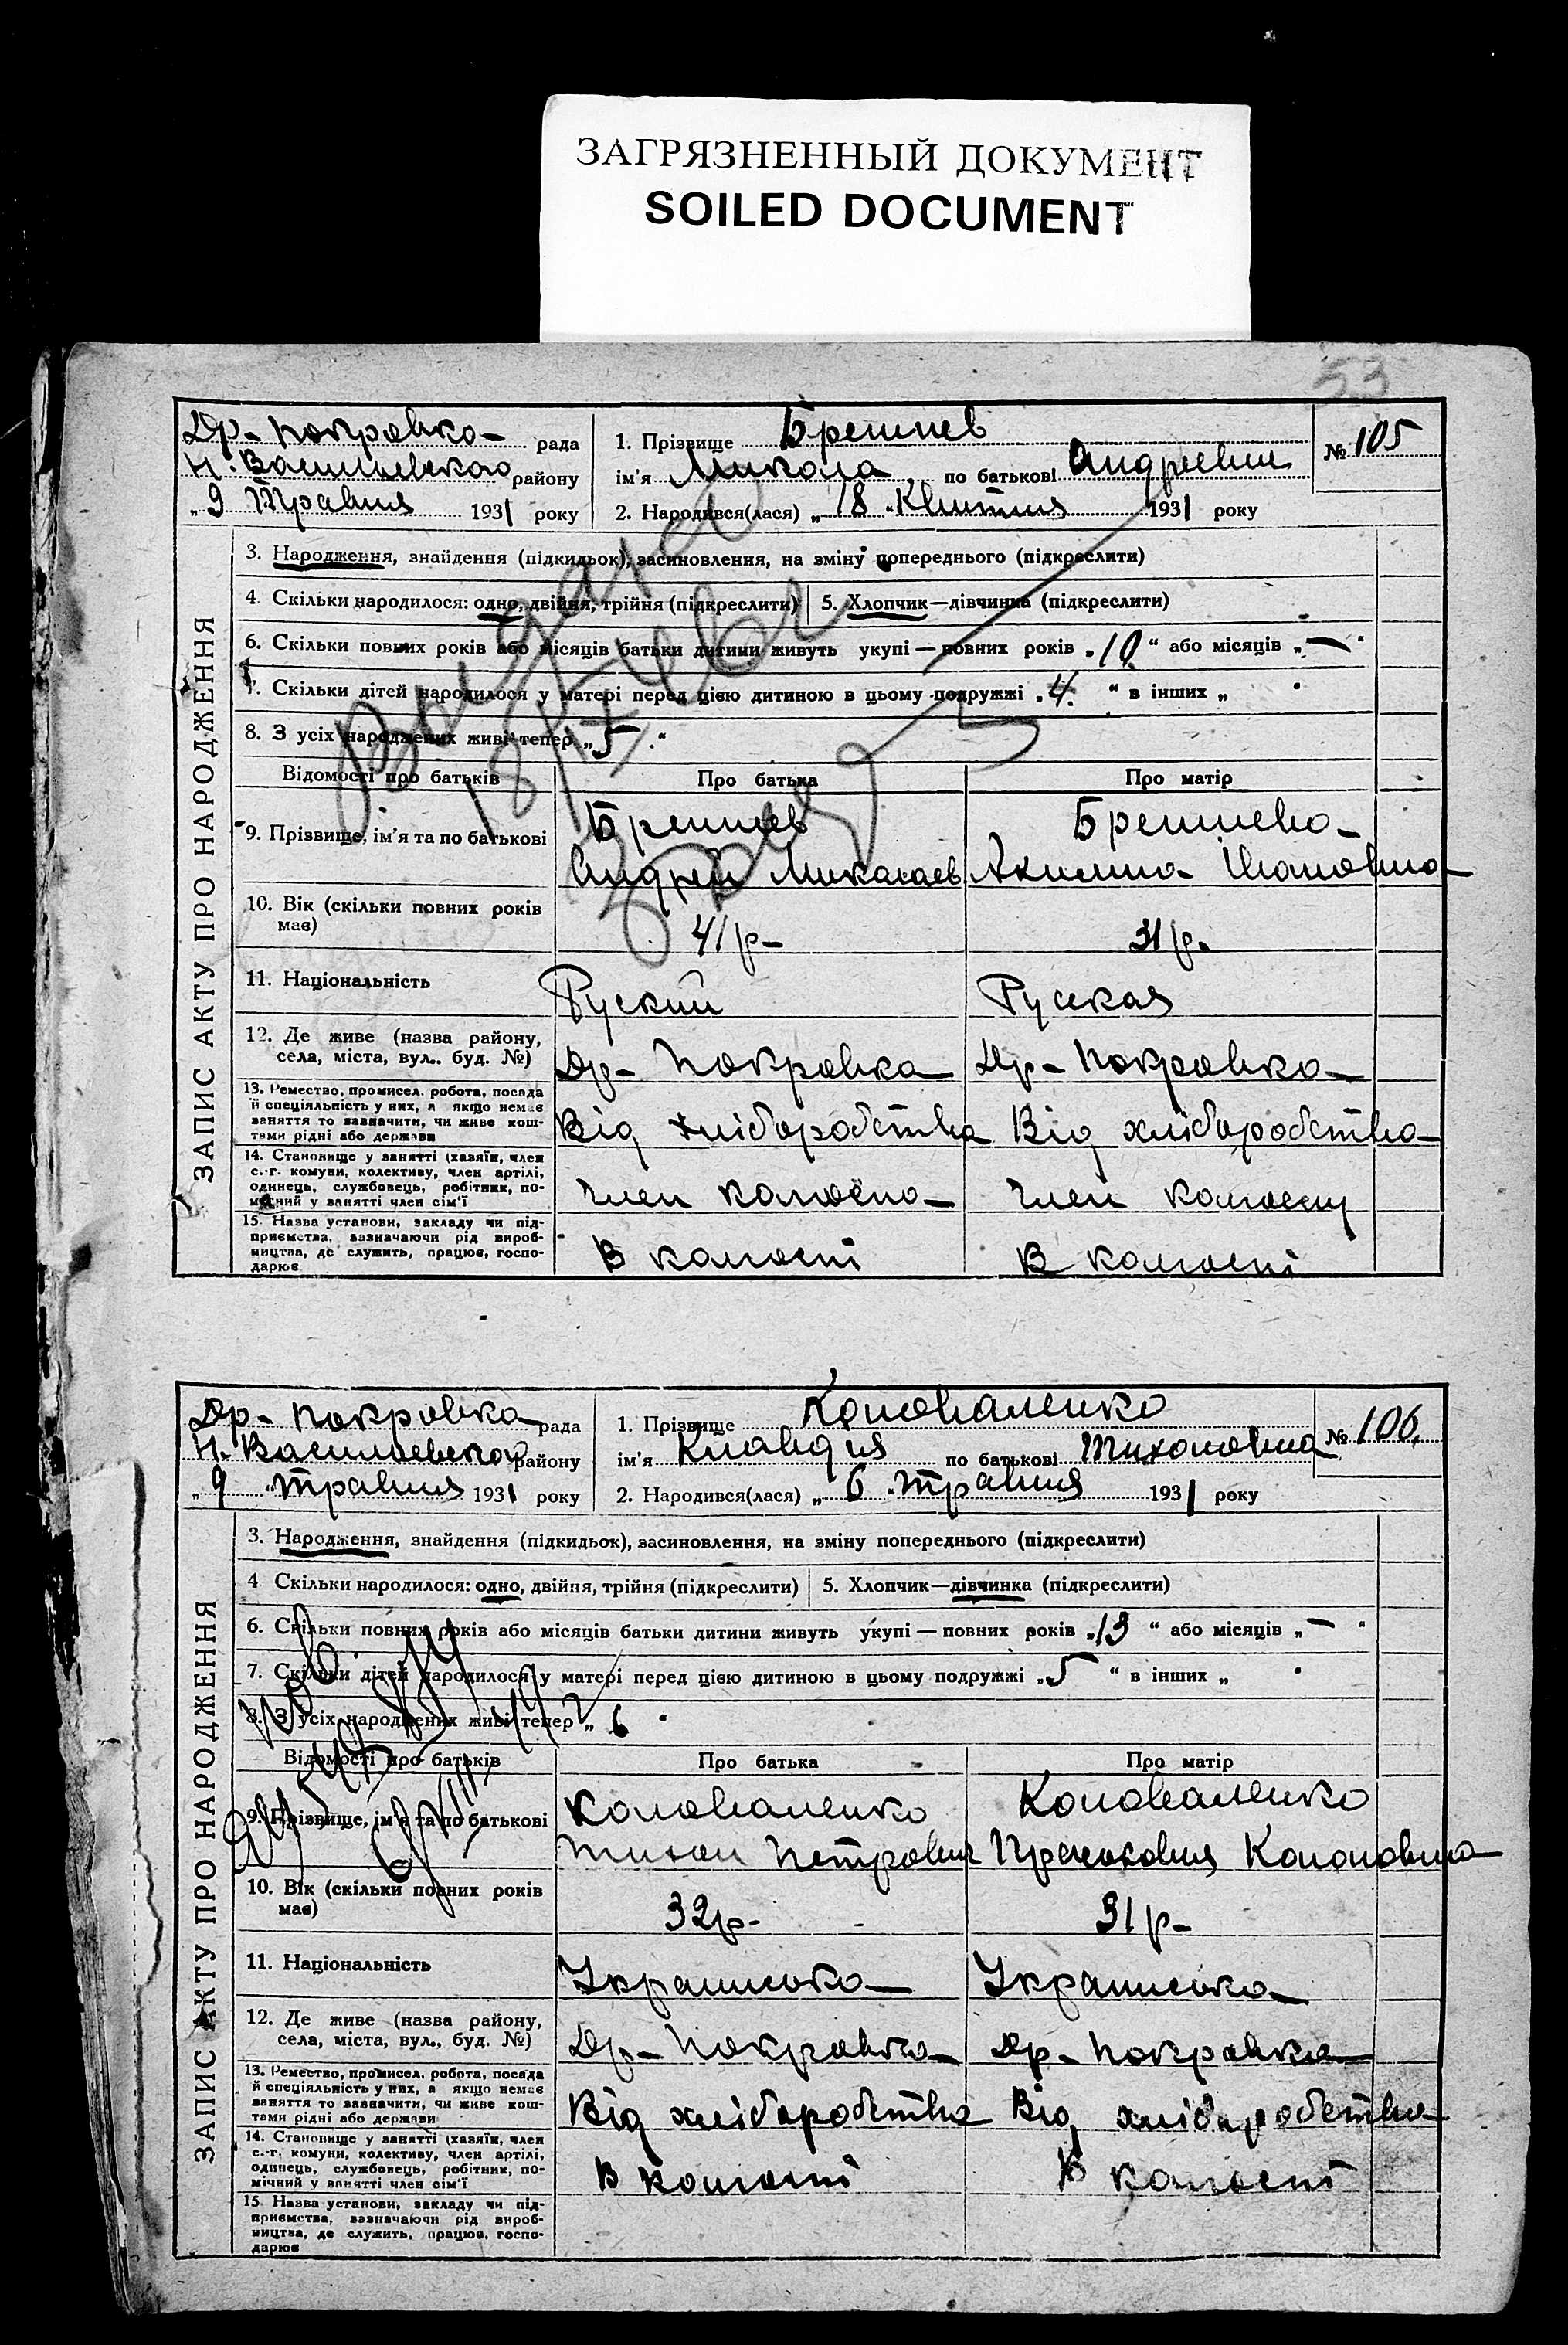 ЗАГРЯЗНЕННЫЙ ДОКУМЕНТ
SOILED DOCUMENT
53
Др-Покровка рада
Н. Васильевского району
„ 9 Травня 1931 року
1. Прізвище
ім'я Микола по батькові Андреевич
2. Народився(лася) „ 18 " Квитня 1931 року
№ 105
ЗАПИС АКТУ ПРО НАРОДЖЕННЯ
3. Народження, знайдення (підкидьок), засиновлення, на зміну попереднього (підкреслити)
4. Скільки народилося: одно, двійня, трійня (підкреслити)
5. Хлопчик—дівчинка (підкреслити)
6. Скільки повних років або місяців батьки дитини живуть укупі — повних років „ 10 " або місяців „ — "
7. Скільки дітей народилося у матері перед цією дитиною в цьому подружжі „ 4 " в інших „ "
8. З усіх народжених живі тепер „ 5 "
Відомості про батьків
Про батька
Про матір
9. Прізвище, ім'я та по батькові
Андрей Николаев
Акилина Ивановна
10. Вік (скільки повних років має)
41 р-
31 р.
11. Національність
Руский
Русская
12. Де живе (назва району, села, міста, вул., буд. №)
Др- Покровка
Др- Покровка
13. Ремество, промисел, робота, посада й спеціяльність у них, а якщо немає заняття то зазначити, чи живе коштами рідні або держави
Від хліборобства
Від хліборобства
14. Становище у занятті (хазяїн, член с.-г. комуни, колективу, член артілі, одинець, службовець, робітник, помічний у занятті член сім'ї
член
член колгоспу
15. Назва установи, закладу чи підприємства, зазначаючи рід виробництва, де служить, працює, господарює
В колгоспі
В колгоспі
Др- Покровка рада
Н. Васильевского району
„ 9 " Травня 1931 року
1. Прізвище Коноваленко
ім'я Клавдия по батькові Тихоновна
2. Народився(лася) „ 6 " Травня 1931 року
№ 106.
ЗАПИС АКТУ ПРО НАРОДЖЕННЯ
3. Народження, знайдення (підкидьок), засиновлення, на зміну попереднього (підкреслити)
4 Скільки народилося: одно, двійня, трійня (підкреслити)
5. Хлопчик—дівчинка (підкреслити)
6. Скільки повних років або місяців батьки дитини живуть укупі — повних років „ 13 " або місяців „ — "
7. Скільки дітей народилося у матері перед цією дитиною в цьому подружжі „ 5 " в інших „ "
8. З усіх народжених живі тепер „ 6 "
Відомості про батьків
Про батька
Про матір
9. Прізвище, ім'я та по батькові
Коноваленко
Коноваленко
Тихон Петрович
Прасковия Кононовна
10. Вік (скільки повних років має)
32 р-
31 р-
11. Національність
12. Де живе (назва району, села, міста, вул., буд. №)
Др- Покровка
Др- Покровка
13. Ремество, промисел, робота, посада й спеціяльність у них, а якщо немає заняття то зазначити, чи живе коштами рідні або держави
Від хліборобства
Від хліборобства
14. Становище у занятті (хазяїн, член с.-г. комуни, колективу, член артілі, одинець, службовець, робітник, помічний у занятті член сім'ї
В колгоспі
В колгоспі
15. Назва установи, закладу чи підприємства, зазначаючи рід виробництва, де служить, працює, господарює